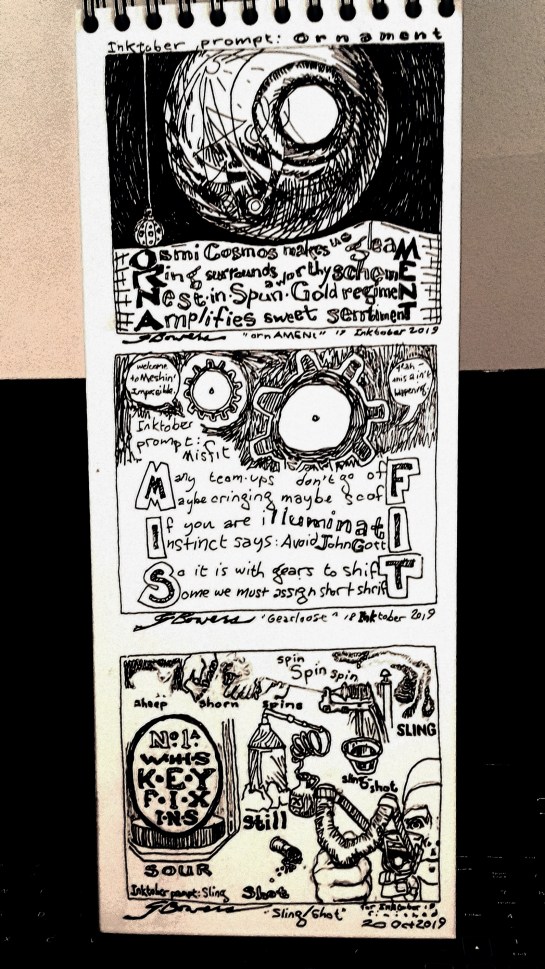 Inktober prompt: Ornament
Osmi Cosmos makes us gleaM
Ring surrounds for thy schemE
Nest-in-Spun-Gold regimeN
Amplifies sweet sentimenT
G Bowers "ornAMENt" 19 Inktober 2019
welcome
to Meshin'
Impossible
yeah -
this ain't
happening
Inktober
prompt:
Misfit
Many team-ups don't go ofF
Maybe cringing maybe scofF
If you are illuminatI
Instinct says: Avoid John GottI
So it is with gears to shifT
Some we must assign short shrifT
G Bowers "Gearloose" 18 Inktober 2019
spin
Spin spin
sheep shorn spins
SLING
No. 1A
WHIS
K·E·Y
F·I·X
INS
sling shot
Still
SOUR
Inktober prompt: Sling Shot
G Bowers "Sling/Shot" for Inktober 19
finished
20 Oct 2019